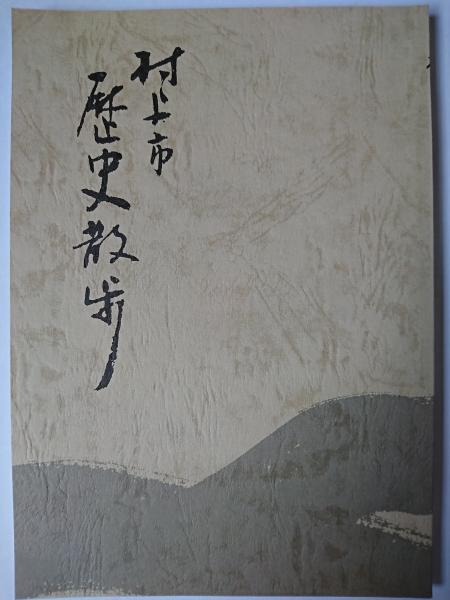 村上市
歴史散歩